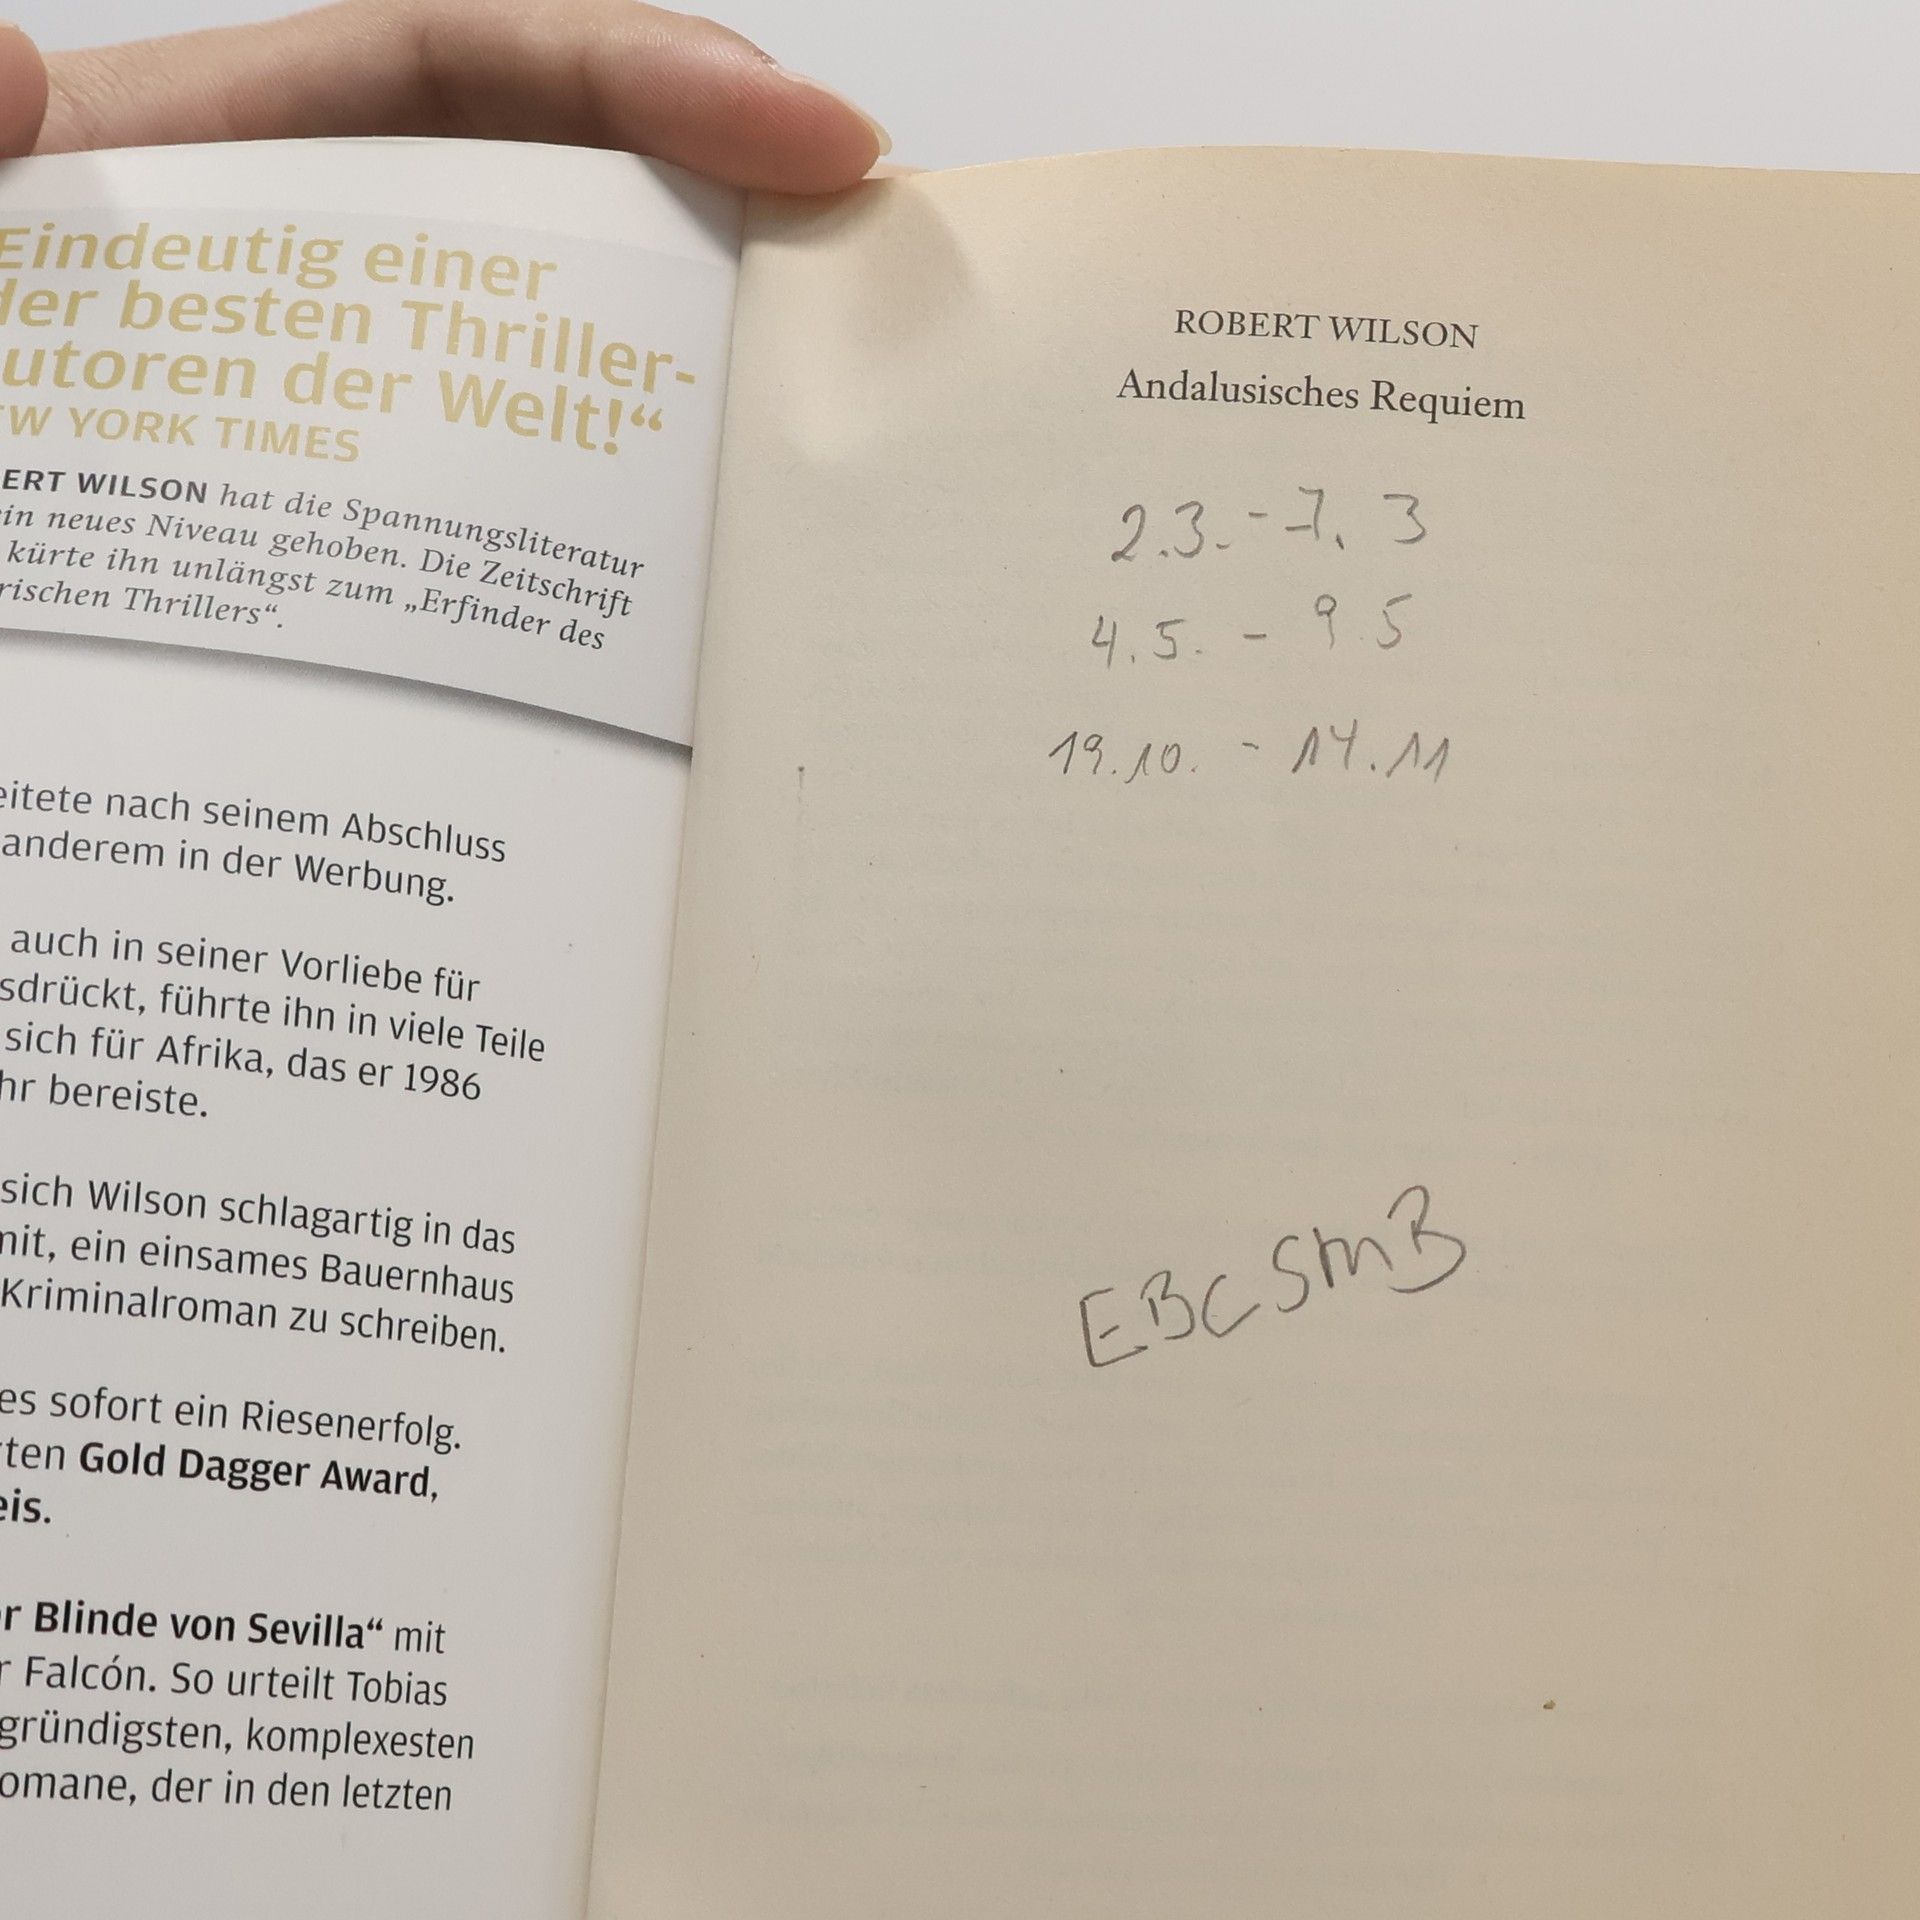 Eindeutig einer
der besten Thriller-
utoren der Welt!“
EW YORK TIMES
ERT WILSON hat die Spannungsliteratur
ein neues Niveau gehoben. Die Zeitschrift
kürte ihn unlängst zum „Erfinder des
rischen Thrillers“.
eitete nach seinem Abschluss
anderem in der Werbung.
auch in seiner Vorliebe für
sdrückt, führte ihn in viele Teile
sich für Afrika, das er 1986
hr bereiste.
sich Wilson schlagartig in das
mit, ein einsames Bauernhaus
Kriminalroman zu schreiben.
es sofort ein Riesenerfolg.
rten Gold Dagger Award,
eis.
r Blinde von Sevilla“ mit
r Falcón. So urteilt Tobias
gründigsten, komplexesten
omane, der in den letzten
ROBERT WILSON
Andalusisches Requiem
2.3. - 7.3
4.5. - 9.5
19.10. - 14.11
EBCSMB